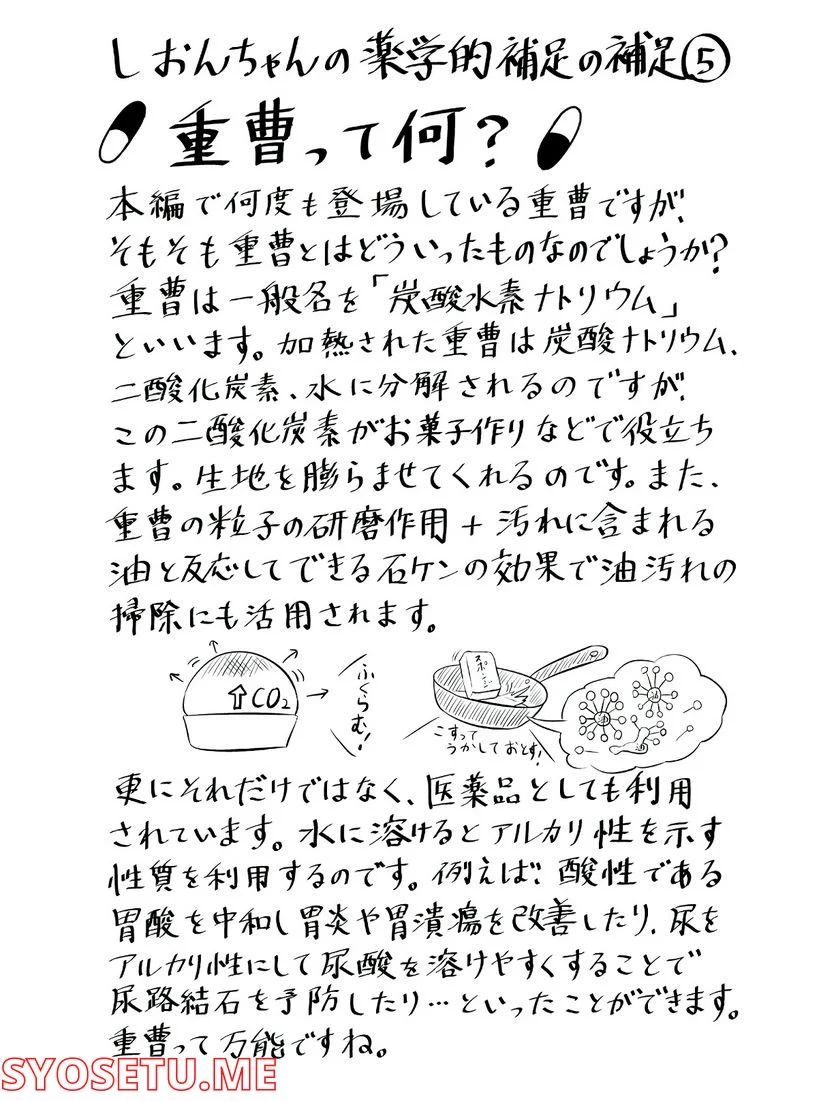 しおんちゃんの薬学的補足の補足⑤
重曹って何?
本編で何度も登場している重曹ですが、
そもそも重曹とはどういったものなのでしょうか?
重曹は一般名を「炭酸水素ナトリウム」
といいます。加熱された重曹は炭酸ナトリウム、
二酸化炭素、水に分解されるのですが、
この二酸化炭素がお菓子作りなどで役立ち
ます。生地を膨らませてくれるのです。また、
重曹の粒子の研磨作用+汚れに含まれる
油と反応してできる石ケンの効果で油汚れの
掃除にも活用されます。
⇧CO₂
ふくらむ!
スポンジ
こすって
うかしておとす!
油
油
更にそれだけではなく、医薬品としても利用
されています。水に溶けるとアルカリ性を示す
性質を利用するのです。例えば、酸性である
胃酸を中和し胃炎や胃潰瘍を改善したり、尿を
アルカリ性にして尿酸を溶けやすくすることで
尿路結石を予防したり…といったことができます。
重曹って万能ですね。
SYOSETU.ME